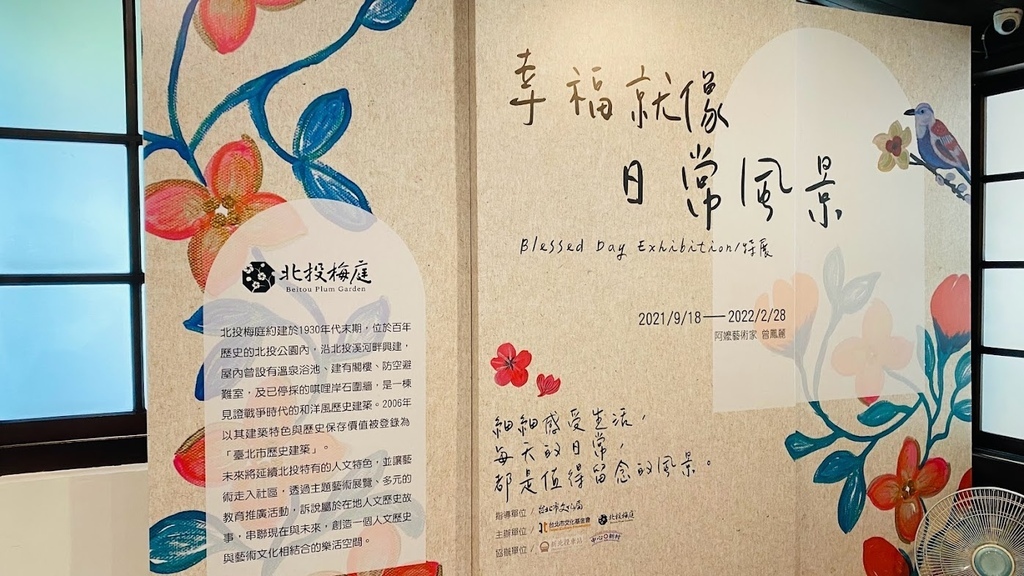 北投梅庭
Beitou Plum Garden
北投梅庭約建於1930年代末期，位於百年
歷史的北投公園內，沿北投溪河畔興建，
屋內曾設有溫泉浴池、建有閣樓、防空避
難室，及已停採的唭哩岸石圍牆，是一棟
見證戰爭時代的和洋風歷史建築。2006年
以其建築特色與歷史保存價值被登錄為
「臺北市歷史建築」。
未來將延續北投特有的人文特色，並讓藝
術走入社區，透過主題藝術展覽、多元的
教育推廣活動，訴說屬於在地人文歷史故
事，串聯現在與未來，創造一個人文歷史
與藝術文化相結合的樂活空間。
幸福就像
日常風景
Blessed Day Exhibition/特展
2021/9/18——2022/2/28
阿嬤藝術家 曾鳳麗
細細感受生活，
每天的日常，
都是值得留念的風景。
指導單位/台北市文化局
主辦單位/台北市文化基金會 北投梅庭
協辦單位/